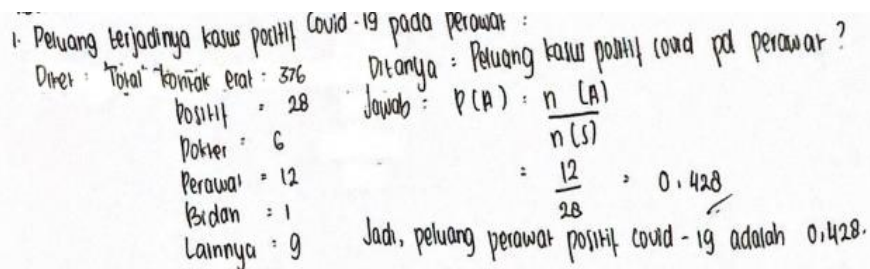 1. Peluang terjadinya kasus positif Covid-19 pada perawat :
Diket : Total kontak erat : 376
Positif : 28
Dokter : 6
Perawat = 12
Bidan : 1
Lainnya : 9
Ditanya : Peluang kasus positif covid pd perawat ?
Jawab : P(A) : n (A)
n (S)
: 12
28
= 0.428
Jadi, peluang perawat positif covid - 19 adalah 0,428.